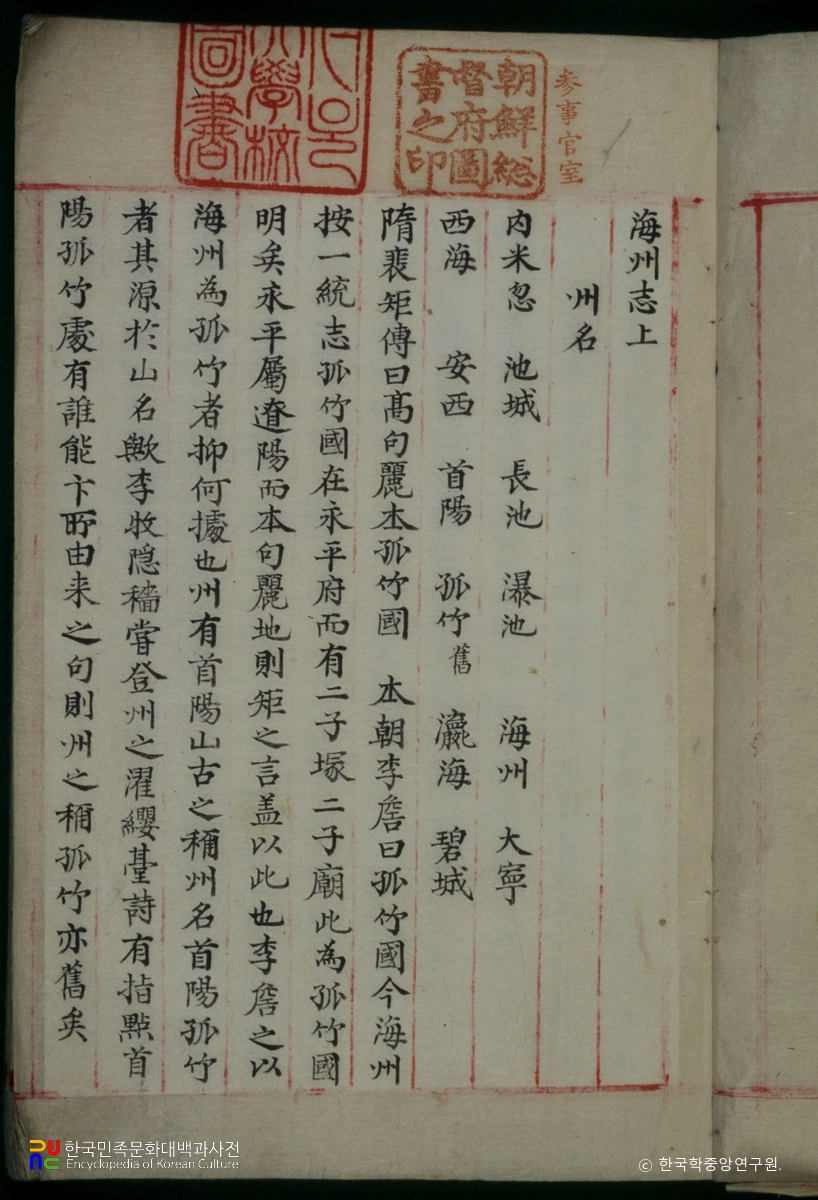 海州志上
州名
内米忽 池城 長池 瀑池 海州 大寧
西海 安西 首陽 孤竹舊 瀛海 碧城
隋裴矩傳曰髙句麗本孤竹國 本朝李詹曰孤竹國今海州
按一統志孤竹國在永平府而有二子塚二子廟此為孤竹國
明矣永平屬遼陽而本句麗地則矩之言盖以此也李詹之以
海州為孤竹者抑何據也州有首陽山古之稱州名首陽孤竹
者其源於山名歟李牧隠穡嘗登州之濯纓臺詩有指點首
陽孤竹處有誰能卞所由来之句則州之稱孤竹亦舊矣
參事官室
朝鮮総
督府圖
書之印
大學校
圖書
한국민족문화대백과사전
Encyclopedia of Korean Culture
© 한국학중앙연구원